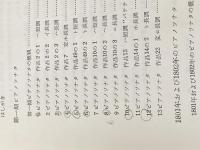 はしがき
第一期ピアノソナタ
第一期ピアノソナタの概観
1 ピアノソナタ 作品2の1
2 ピアノソナタ 作品2の2
3 ピアノソナタ 作品2の3
4 ピアノソナタ 作品7 変ホ長調
5 ピアノソナタ 作品49の1 ト短調
6 ピアノソナタ 作品49の2 ト長調
7 ピアノソナタ 作品10の1 ハ短調
8 ピアノソナタ 作品10の2 ヘ長調
9 ピアノソナタ 作品10の3 ニ長調
10 ピアノソナタ 作品13 ハ短調
11 ピアノソナタ 作品14の1 ホ長調
12 ピアノソナタ 作品14の2 ト長調
13 ピアノソナタ 作品22 変ロ長調
1801年および1802年のピアノソナタ
1801年および1802年のピアノソナタの概